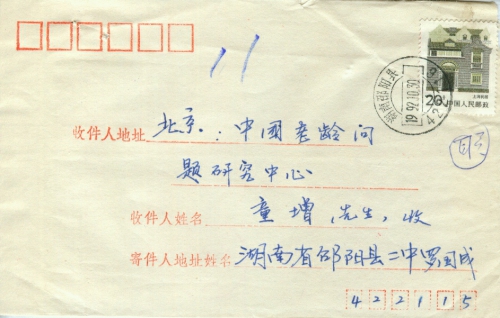 11
上海民居
20分
中国人民邮政
1992.10.30
收件人地址 北京：中国老龄问
题研究中心
收件人姓名 童增 先生，收
寄件人地址姓名 湖南省邵阳县二中罗国成
422115